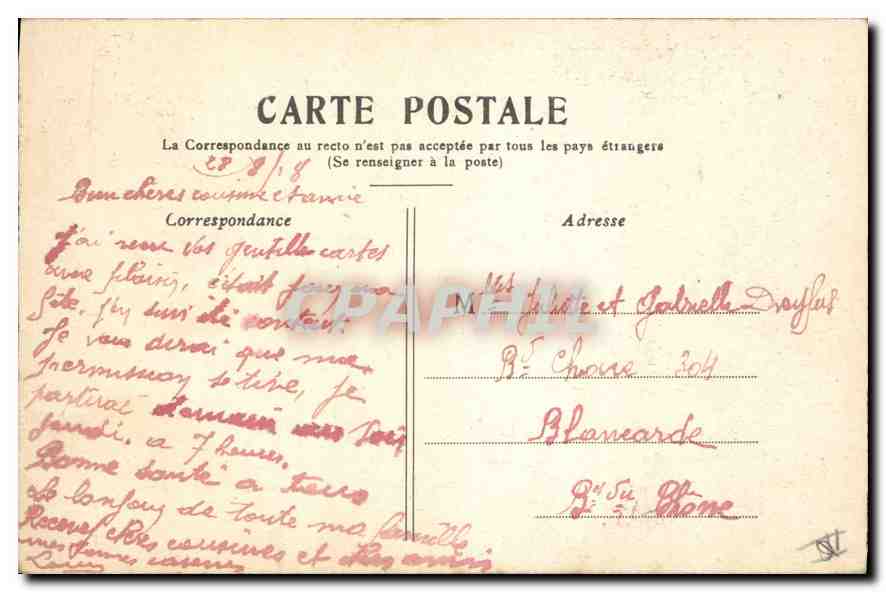 CARTE POSTALE
La Correspondance au recto n'est pas acceptée par tous les pays étrangers
(Se renseigner à la poste)
28 8/18
Bien chères cousine et amie
Correspondance
J'ai reçu vos gentille cartes
avec plaisir, c'était pour ma
fête. J'y suis été content.
Je vous dirai que ma
permission se tire, je
partirai demain soir
Jeudi. a 7 heures.
Bonne santé a tous
Le bonjour de toute ma famille
Recevez chères cousines et
mes bonnes caresses
Louis
Adresse
Mlles Juliette et Gabrielle Dreyfus
Bd Chave 304
Blancarde
Bes du Rhône
CPAPHIL